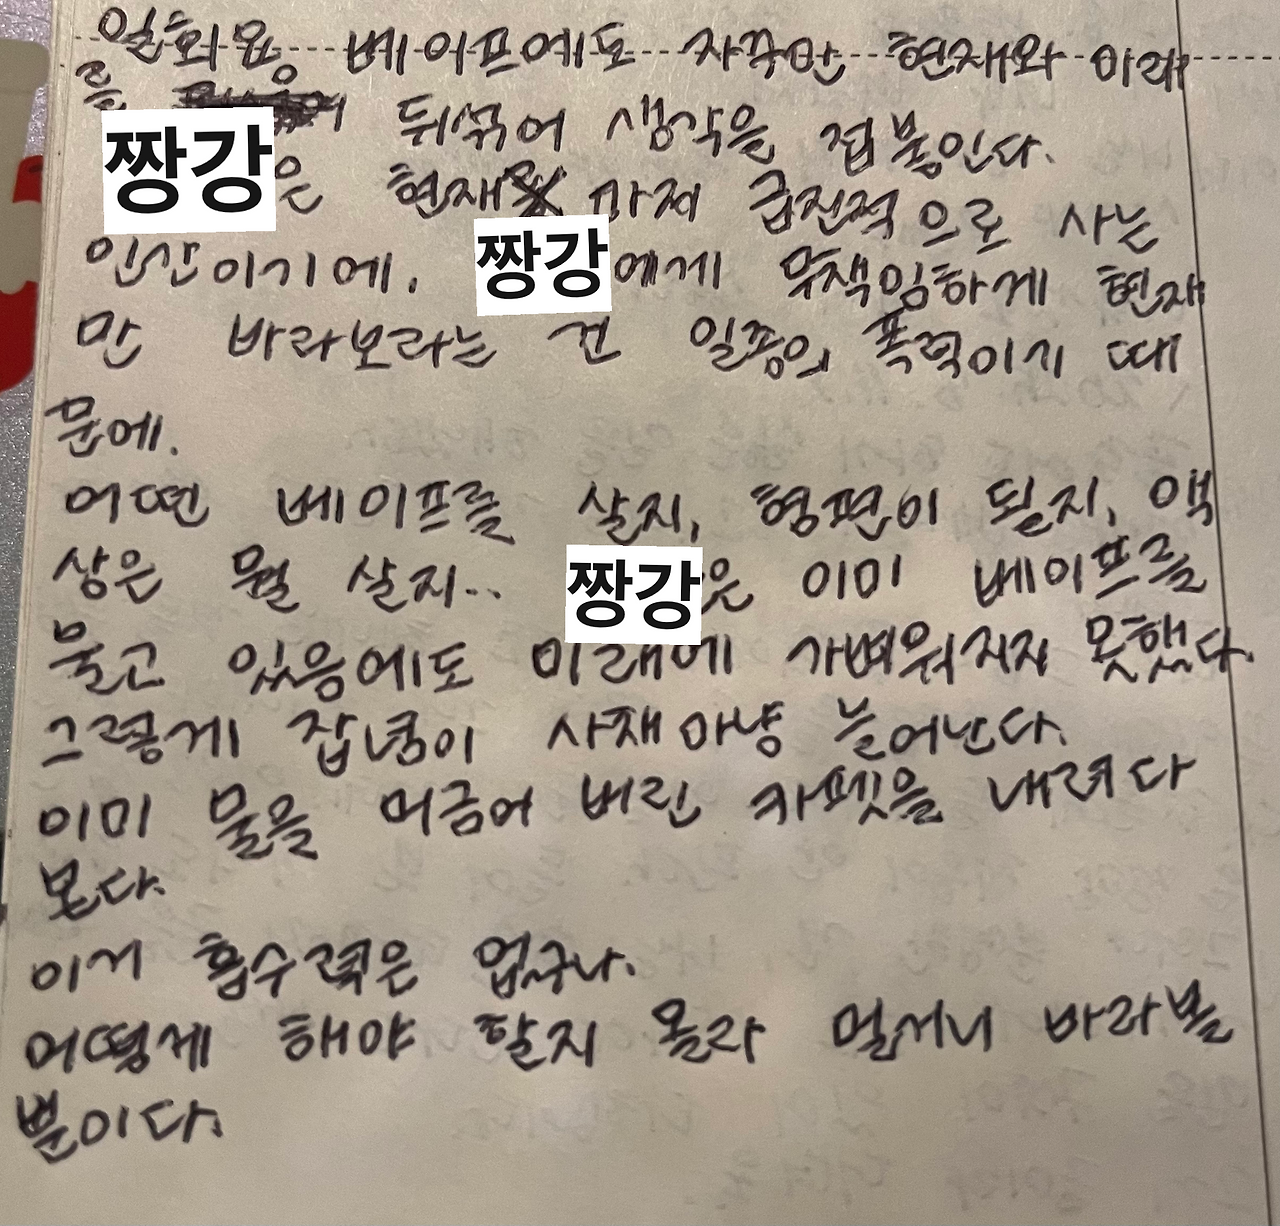 일회용 베이프에도 자꾸만 현재와 미래
를 뒤섞어 생각을 접붙인다.
짱강은 현재 마저 급진적으로 사는
인간이기에. 짱강에게 무책임하게 현재
만 바라보라는 건 일종의 폭력이기 때
문에.
어떤 베이프를 살지, 형편이 될지, 액
상은 뭘 살지.. 짱강은 이미 베이프를
물고 있음에도 미래에 가벼워지지 못했다.
그렇게 잡념이 사채마냥 늘어난다.
이미 물을 머금어 버린 카펫을 내려다
본다.
이거 흡수력은 없구나.
어떻게 해야 할지 몰라 멀거니 바라볼
뿐이다.